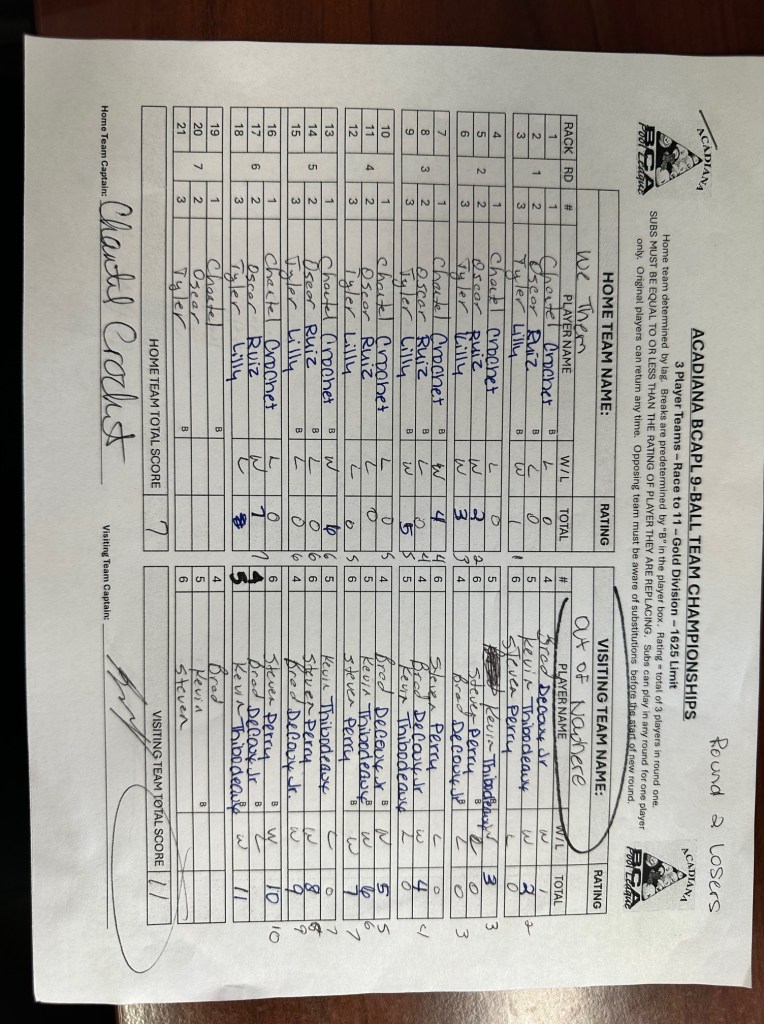 Round 2 Losers
ACADIANA BCAPL 9-BALL TEAM CHAMPIONSHIPS
3 Player Teams – Race to 11 – Gold Division – 1625 Limit
ACADIANA
BCA
Pool League
ACADIANA
BCA
Pool League
Home team determined by lag. Breaks are predetermined by "B" in the player box. Rating = total of 3 players in round one.
SUBS MUST BE EQUAL TO OR LESS THAN THE RATING OF PLAYER THEY ARE REPLACING. Subs can play in any round for one player
only. Original players can return any time. Opposing team must be aware of substitutions before the start of new round.
HOME TEAM NAME: RATING VISITING TEAM NAME: RATING
We Them Out of Nowhere
RACK RD # PLAYER NAME W/L TOTAL # PLAYER NAME W/L TOTAL
1 1 Chautel Crochet B L 0 4 Brad Decoux Jr W 1
2 1 2 Oscar Ruiz B L 0 5 Kevin Thibodeaux W 2 2
3 3 Tyler Lilly B W 1 1 6 Steven Perry L 0
4 1 Chautel Crochet L 0 5 Kevin Thibodeaux W 3 3
5 2 2 Oscar Ruiz W 2 2 6 Steven Perry B L 0
6 3 Tyler Lilly W 3 3 4 Brad Decoux Jr B L 0 3
7 1 Chautel Crochet B W 4 4 6 Steven Perry L 0
8 3 2 Oscar Ruiz B L 0 4 4 Brad Decoux Jr W 4 4
9 3 Tyler Lilly B W 5 5 5 Kevin Thibodeaux L 0
10 1 Chautel Crochet L 0 5 4 Brad Decoux Jr B W 5 5
11 4 2 Oscar Ruiz L 0 5 Kevin Thibodeaux B W 6 6
12 3 Tyler Lilly L 0 5 6 Steven Perry B W 7 7
13 1 Chautel Crochet B W 6 6 5 Kevin Thibodeaux L 0 7
14 5 2 Oscar Ruiz B L 0 6 6 Steven Perry W 8 8
15 3 Tyler Lilly B L 0 6 4 Brad Decoux Jr. W 9 9
16 1 Chautel Crochet L 0 6 Steven Perry B W 10 10
17 6 2 Oscar Ruiz W 7 7 4 Brad Decoux Jr B L
18 3 Tyler Lilly L 5 Kevin Thibodeaux B W 11
19 1 Chautel B 4 Brad
20 7 2 Oscar 5 Kevin B
21 3 Tyler B 6 Steven
HOME TEAM TOTAL SCORE 7 VISITING TEAM TOTAL SCORE 11
Home Team Captain: Chautel Crochet Visiting Team Captain: